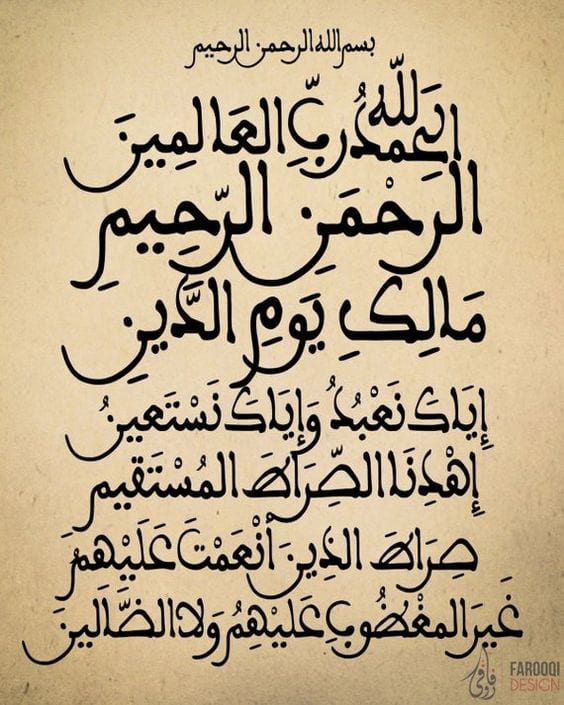 بسم الله الرحمن الرحيم
الحمد لله ربّ العَالمِينَ
الرَحْمَنِ الرّحِيمِ
مَالِكِ يَومِ الدَّينِ
إِيَاكَ نَعْبُدُ وَإِيَاكَ نَسْتَعِينُ
إِهْدِنَا الصِّرَاطَ المُسْتَقِيم
صِرَاطَ الذِينَ أَنْعَمْتَ عَلَيْهِمَ
غَيرَ المغْضُوبِ عَلَيْهِمُ وَلَا الضَّالَينَ
فاروقي
FAROOQI
DESIGN